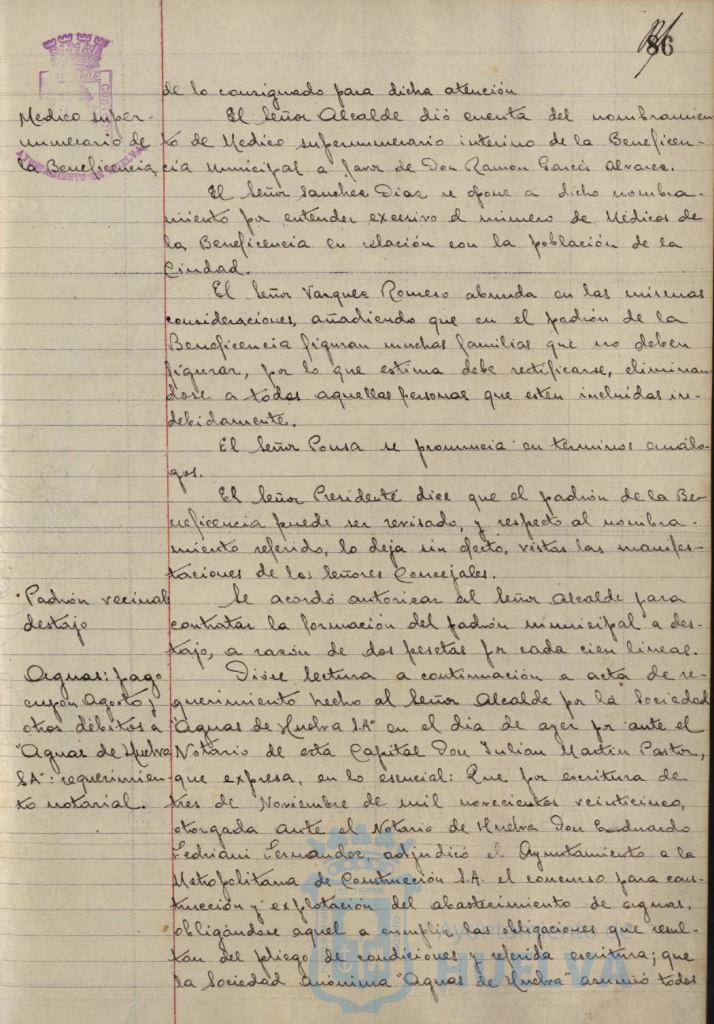 86
de lo consignado para dicha atención
Medico super-
numerario de
la Beneficencia
El Señor Alcalde dió cuenta del nombramien
to de Medico supernumerario interino de la Beneficen-
cia Municipal a favor de Don Ramon Garcés Alvarez.
El Señor Sanchez Diaz se opone a dicho nombra-
miento por entender excesivo el número de Médicos de
la Beneficencia en relación con la población de la
Ciudad.
El Señor Vazquez Romero abunda en las mismas
consideraciones, añadiendo que en el padrón de la
Beneficencia figuran muchas familias que no deben
figurar, por lo que estima debe rectificarse, eliminan-
dose a todas aquellas personas que estén incluidas in-
debidamente.
El Señor Ponsa se pronuncia en términos análo-
gos.
El Señor Presidente dice que el padrón de la Be-
neficencia puede ser revisado, y respecto al nombra-
miento referido, lo deja sin efecto, vistas las manifes-
taciones de los Señores Concejales.
Padrón vecinal
destajo
Se acordó autorizar al Señor Alcalde para
contratar la formación del padrón municipal a des-
tajo, a razón de dos pesetas por cada cien lineas.
Aguas: pago
cupon Agosto y
otros débitos a
"Aguas de Huelva
S.A": requerimien-
to notarial.
Dióse lectura a continuación a acta de re-
querimiento hecho al Señor Alcalde por la Sociedad
"Aguas de Huelva S.A" en el dia de ayer por ante el
Notario de esta Capital Don Julian Martin Pastor,
que expresa, en lo esencial: Que por escritura de
tres de Noviembre de mil novecientos veinticinco,
otorgada ante el Notario de Huelva Don Eduardo
Fedriani Fernandez, adjudicó el Ayuntamiento a la
Metropolitana de Construcción S.A. el concurso para cons-
trucción y explotación del abastecimiento de aguas,
obligándose aquel a cumplir las obligaciones que resul-
tan del pliego de condiciones y referida escritura; que
la Sociedad anónima "Aguas de Huelva" asumió todos
Ayuntamiento de
HUELVA